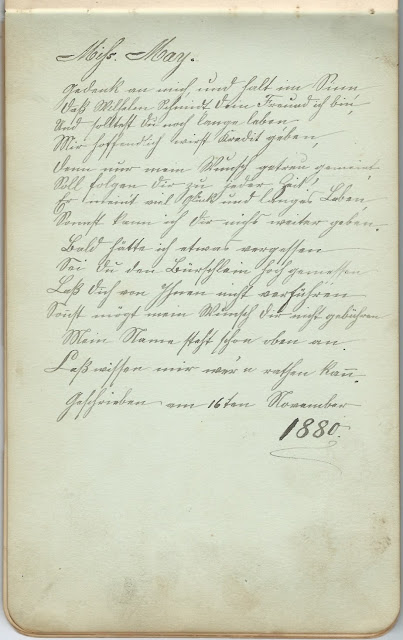 Miss. May.
Gedenk an mich, und halt im Sinn
Daß Wilhelm Schmidt dein Freund ich bin,
Und solltest du noch lange leben
Mir hoffendlich wirst Kredit geben,
Denn nur mein Wunsch getreu gemeint,
Soll folgen dir zu jeder Zeit,
Er meint viel Glück und langes Leben
Sonnst kann ich dir nichts weiter geben.
Bald hätte ich etwas vergessen
Sei du den Bürschlein hoch gemessen
Laß dich von Ihnen nicht verführen
Sonst mögt mein Wunsch dir nicht gebühren
Mein Name steht schon oben an.
Laß wissen mir wer'n rathen kann.
Geschrieben am 16ten November
1880.